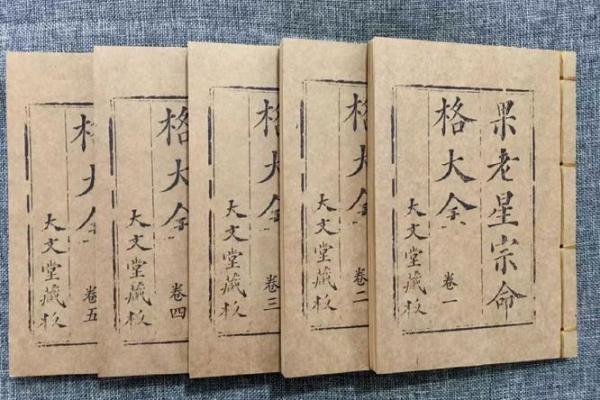 果老星宗命
格大全 卷一
大文堂藏板
格大全 卷二
大文堂藏板
格大全 卷三
大文堂藏板
格大全 卷四
大文堂藏板
格大全 卷五
大文堂藏板